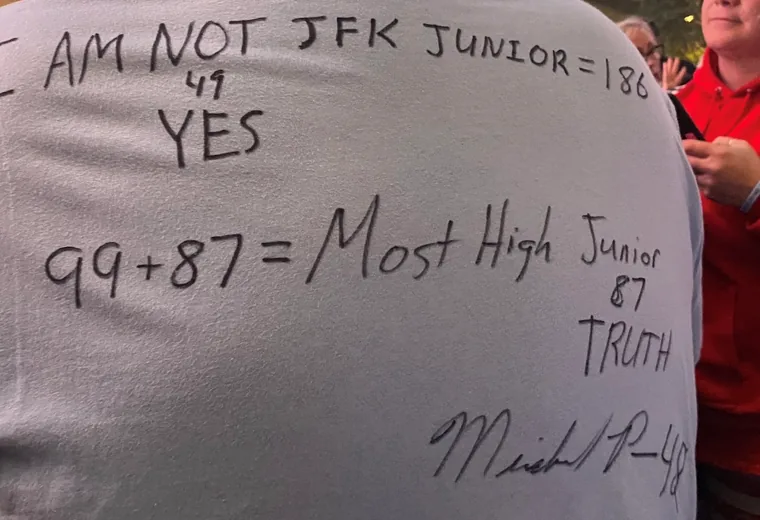 I AM NOT JFK JUNIOR = 186
49
YES
99 + 87 = Most High Junior
87
TRUTH
Michael P-48